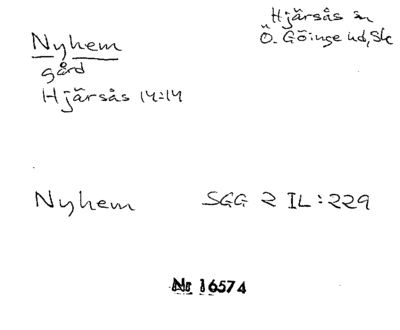 Nyhem
gård
Hjärsås 14:14
Hjärsås sn
Ö. Göinge hd, Sk
Nyhem SGG 2 IL:229
Nr 16574